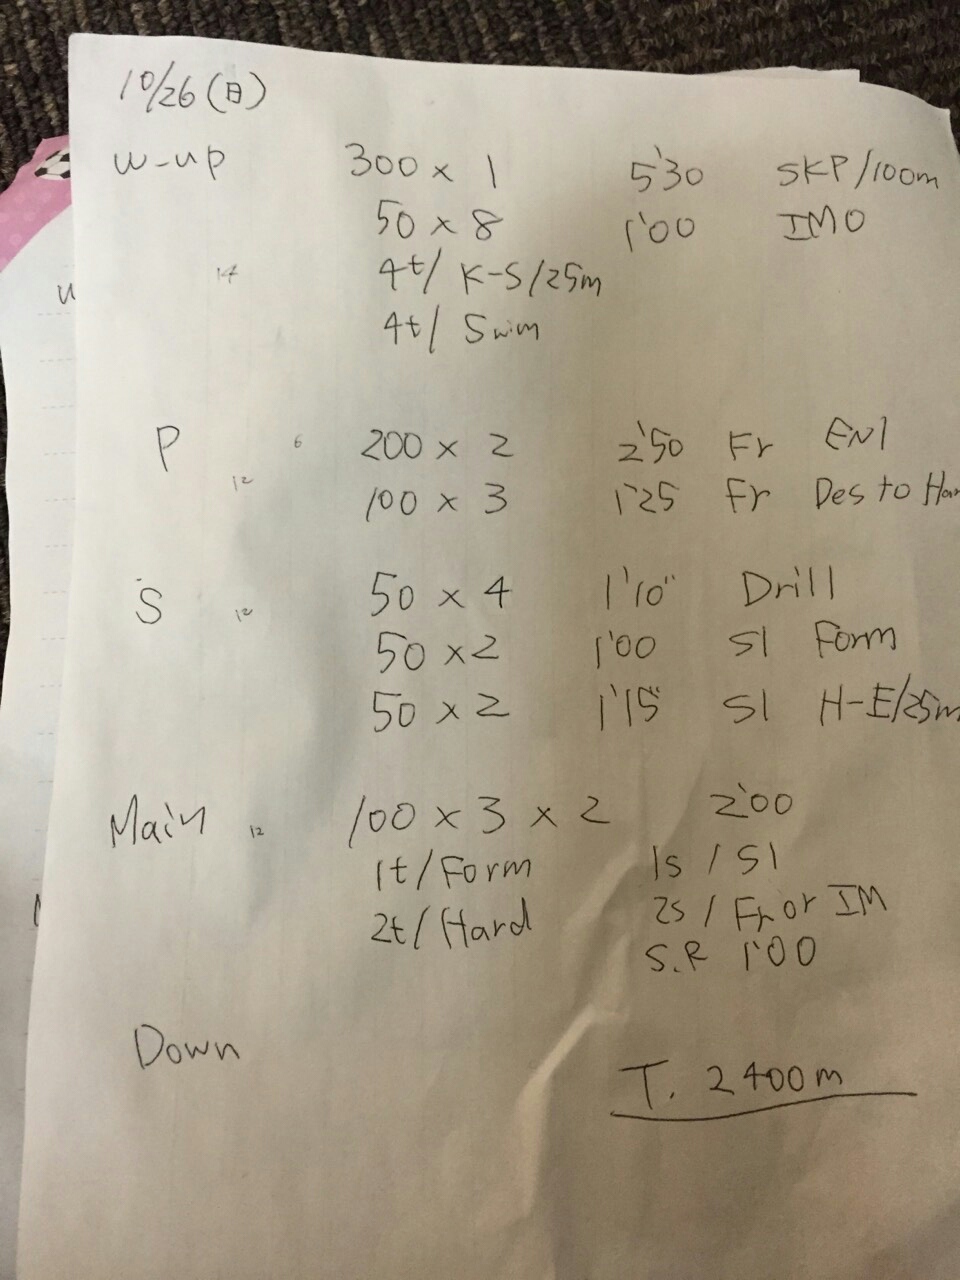 10/26(日)
W-up 300 × 1 5'30 SKP/100m
50 × 8 1'00 IMO
14 4t/ K-S/25m
4t/ Swim
P 6 200 × 2 2'50 Fr EN1
12 100 × 3 1'25 Fr Des to
S 12 50 × 4 1'10" Drill
50 × 2 1'00 S1 Form
50 × 2 1'15" S1 H-E/25m
Main 12 100 × 3 × 2 2'00
1t/Form 1s / S1
2t/Hard 2s / Fr or IM
S.R 1'00
Down
T. 2400m